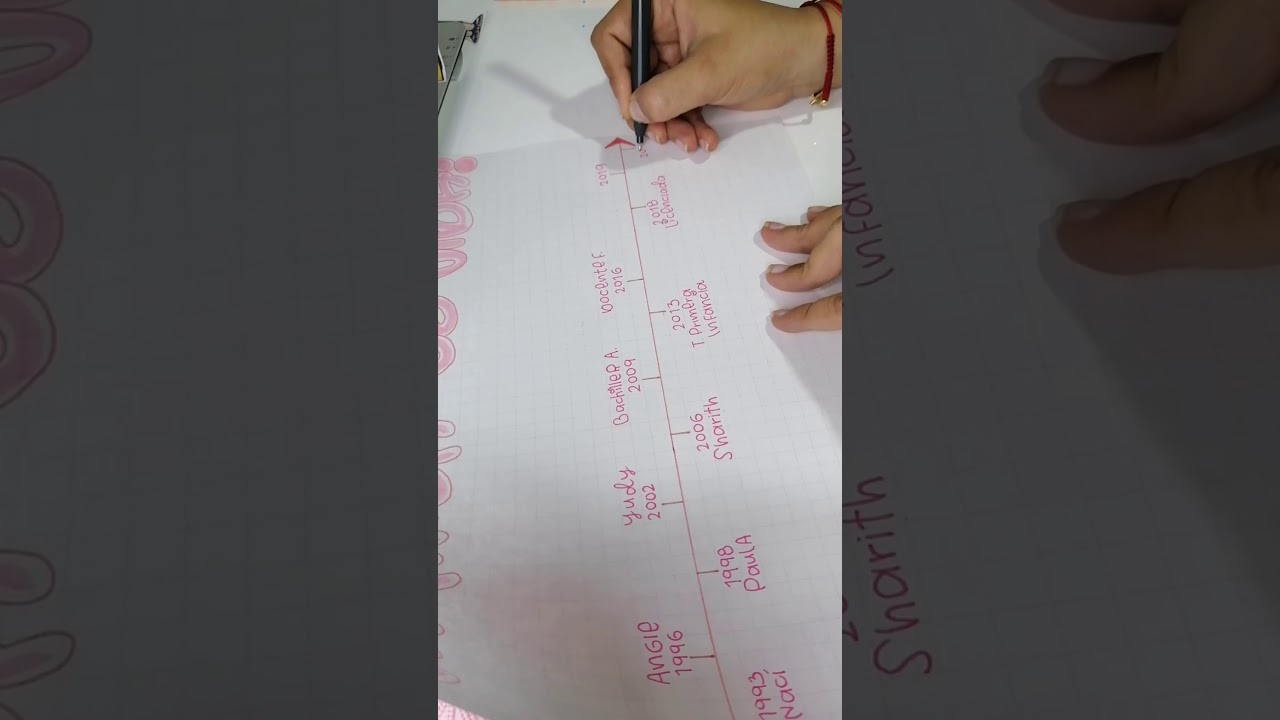 1993,
Nací
ANGIE
1996
1998
PaulA
Yudy
2002
2006
Sharith
Bachiller A.
2009
2013
T Primera
Infancia
Docente F.
2016
2018
Licenciada
2019
20
Infancia
Sharith